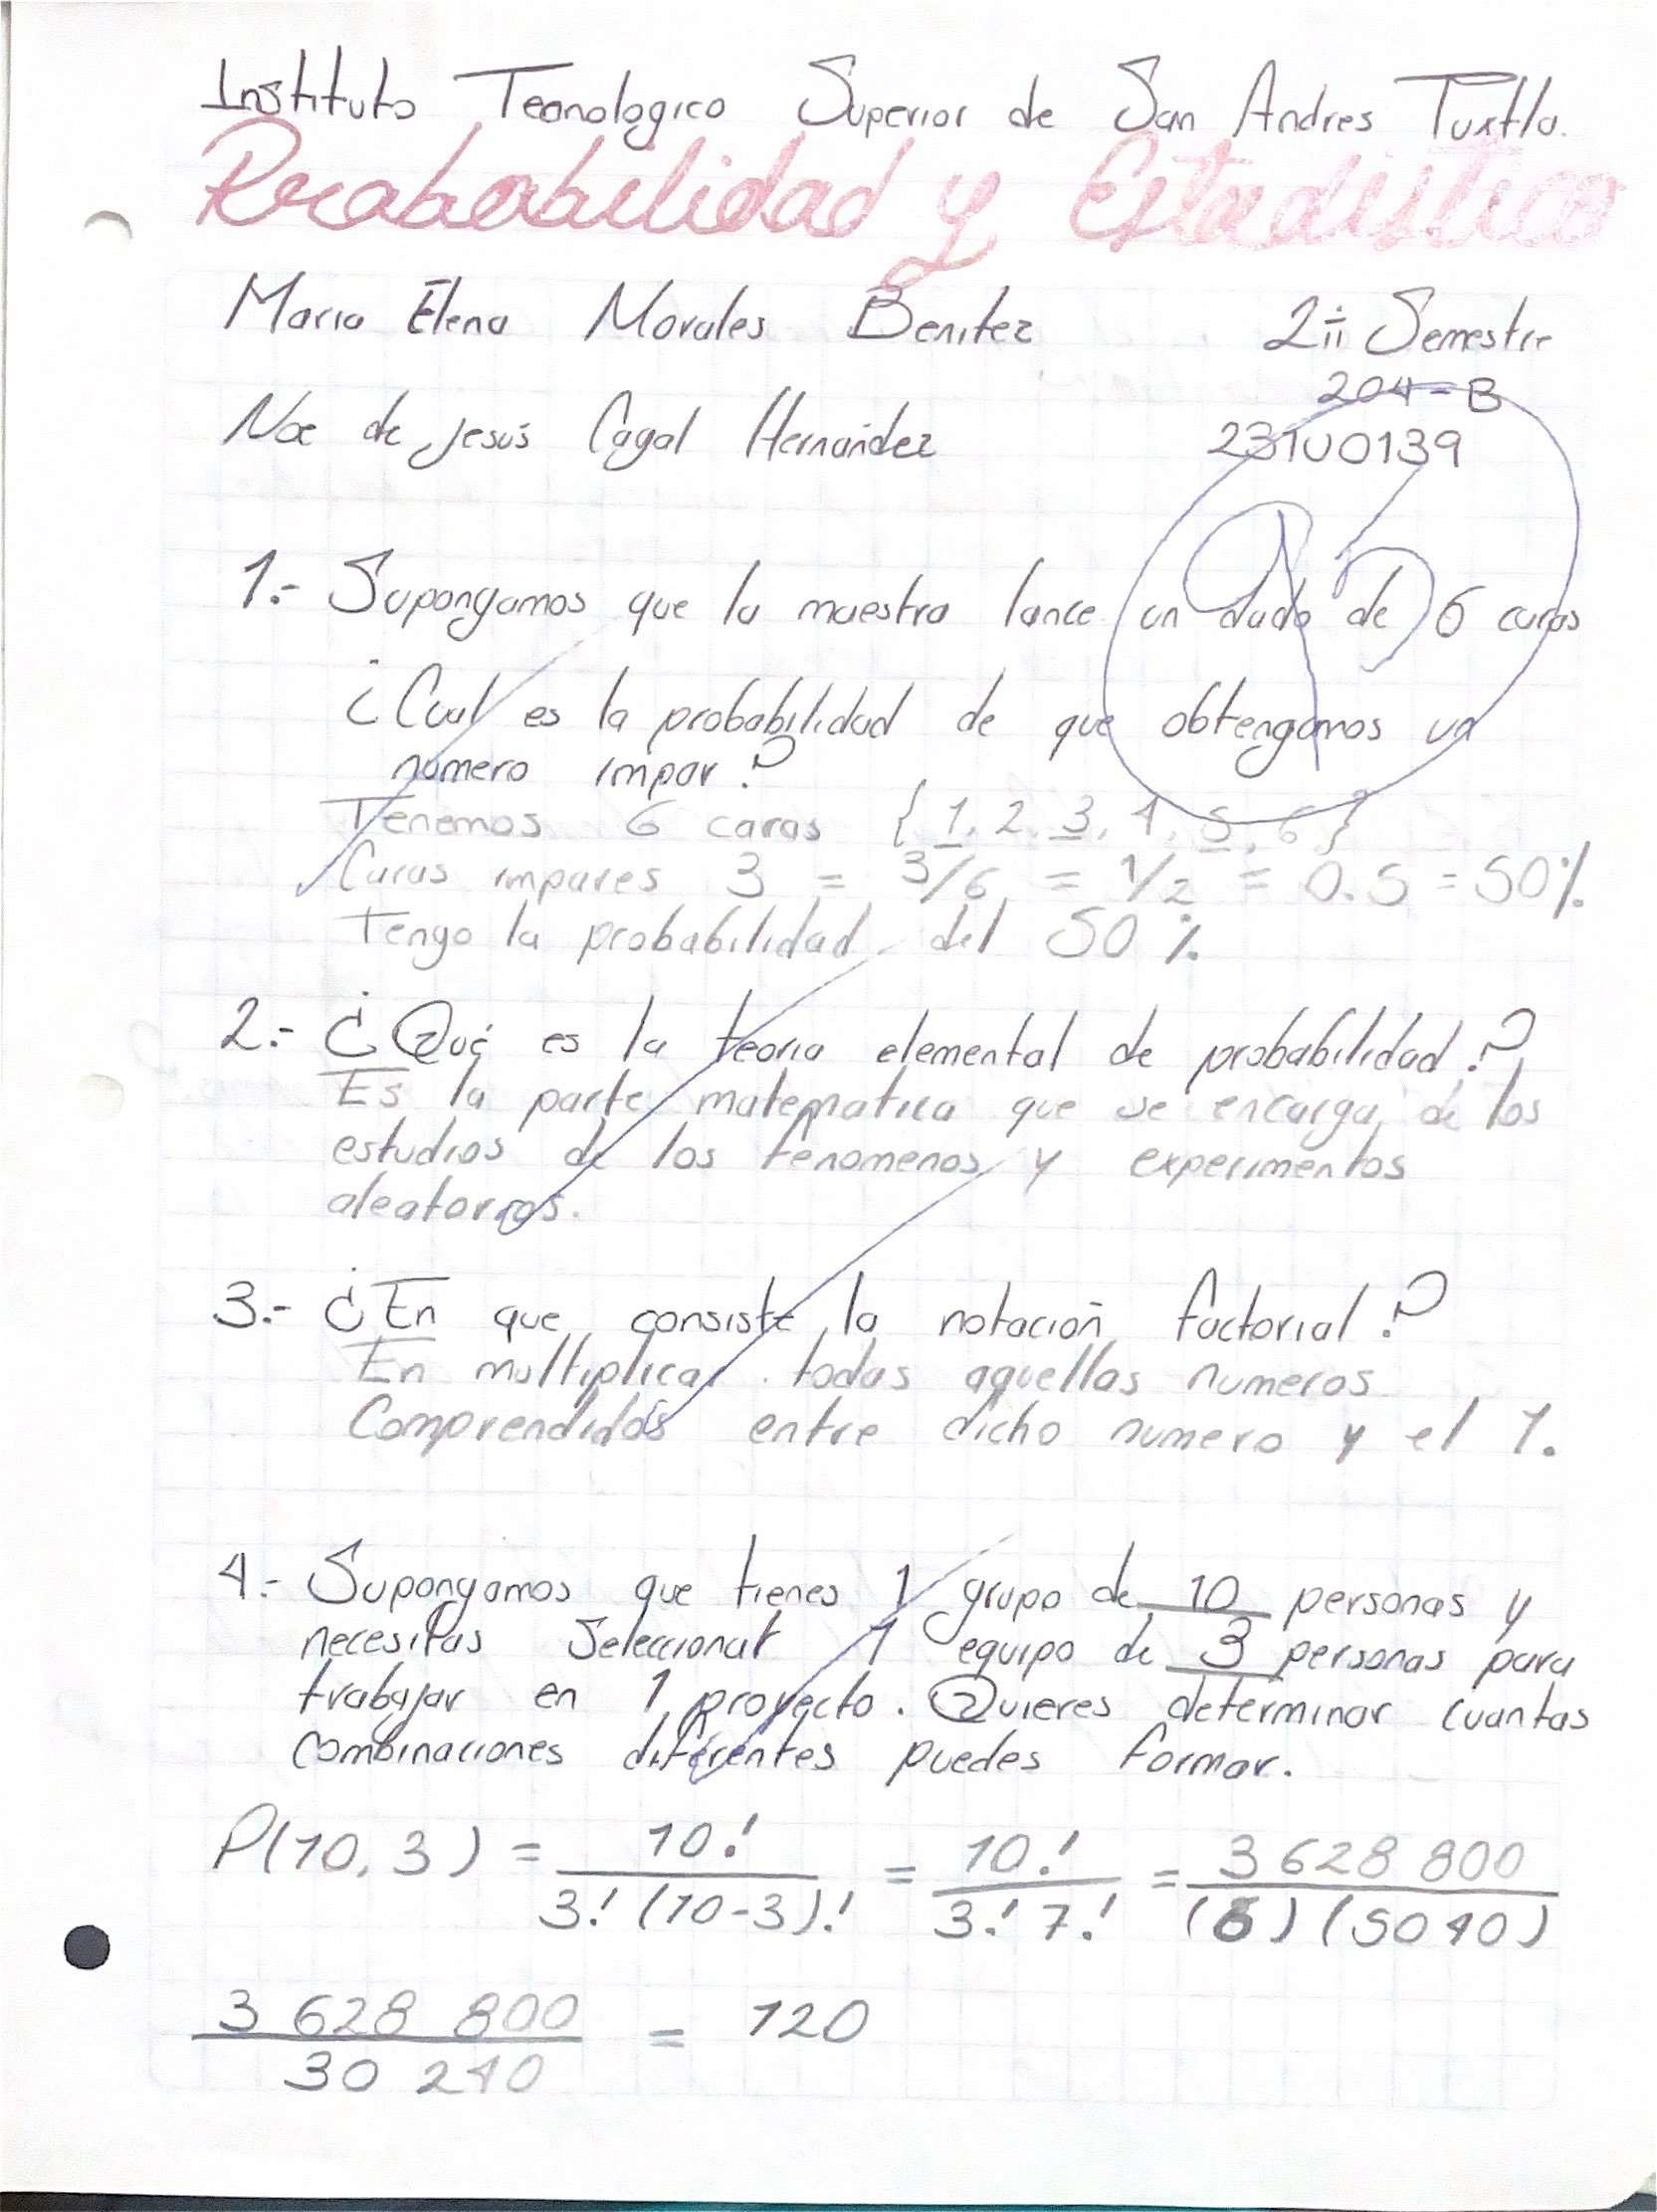 Instituto Tecnologico Superior de San Andres Tuxtla.
Probabilidad y Estadistica
Maria Elena Morales Benitez 2ii Semestre
204-B
Noe de Jesús Cagal Hernández 231U0139
1.- Supongamos que la maestra lance un dado de 6 caras
¿Cual es la probabilidad de que obtengamos un
numero impar?
Tenemos 6 caras {1, 2, 3, 4, 5, 6}
Caras impares 3 = 3/6 = 1/2 = 0.5 = 50%
Tengo la probabilidad del 50%
2.- ¿Qué es la teoria elemental de probabilidad?
Es la parte matematica que se encarga de los
estudios de los fenomenos y experimentos
aleatorios.
3.- ¿En que consiste la notación factorial?
En multiplicar todos aquellos numeros
Comprendidos entre dicho numero y el 1.
4.- Supongamos que tienes 1 grupo de 10 personas y
necesitas Seleccionar 1 equipo de 3 personas para
trabajar en 1 proyecto. Quieres determinar cuantas
combinaciones diferentes puedes formar.
P(10,3) = 10! / 3!(10-3)! = 10! / 3! 7! = 3 628 800 / (6)(5040)
3 628 800 / 30 240 = 120